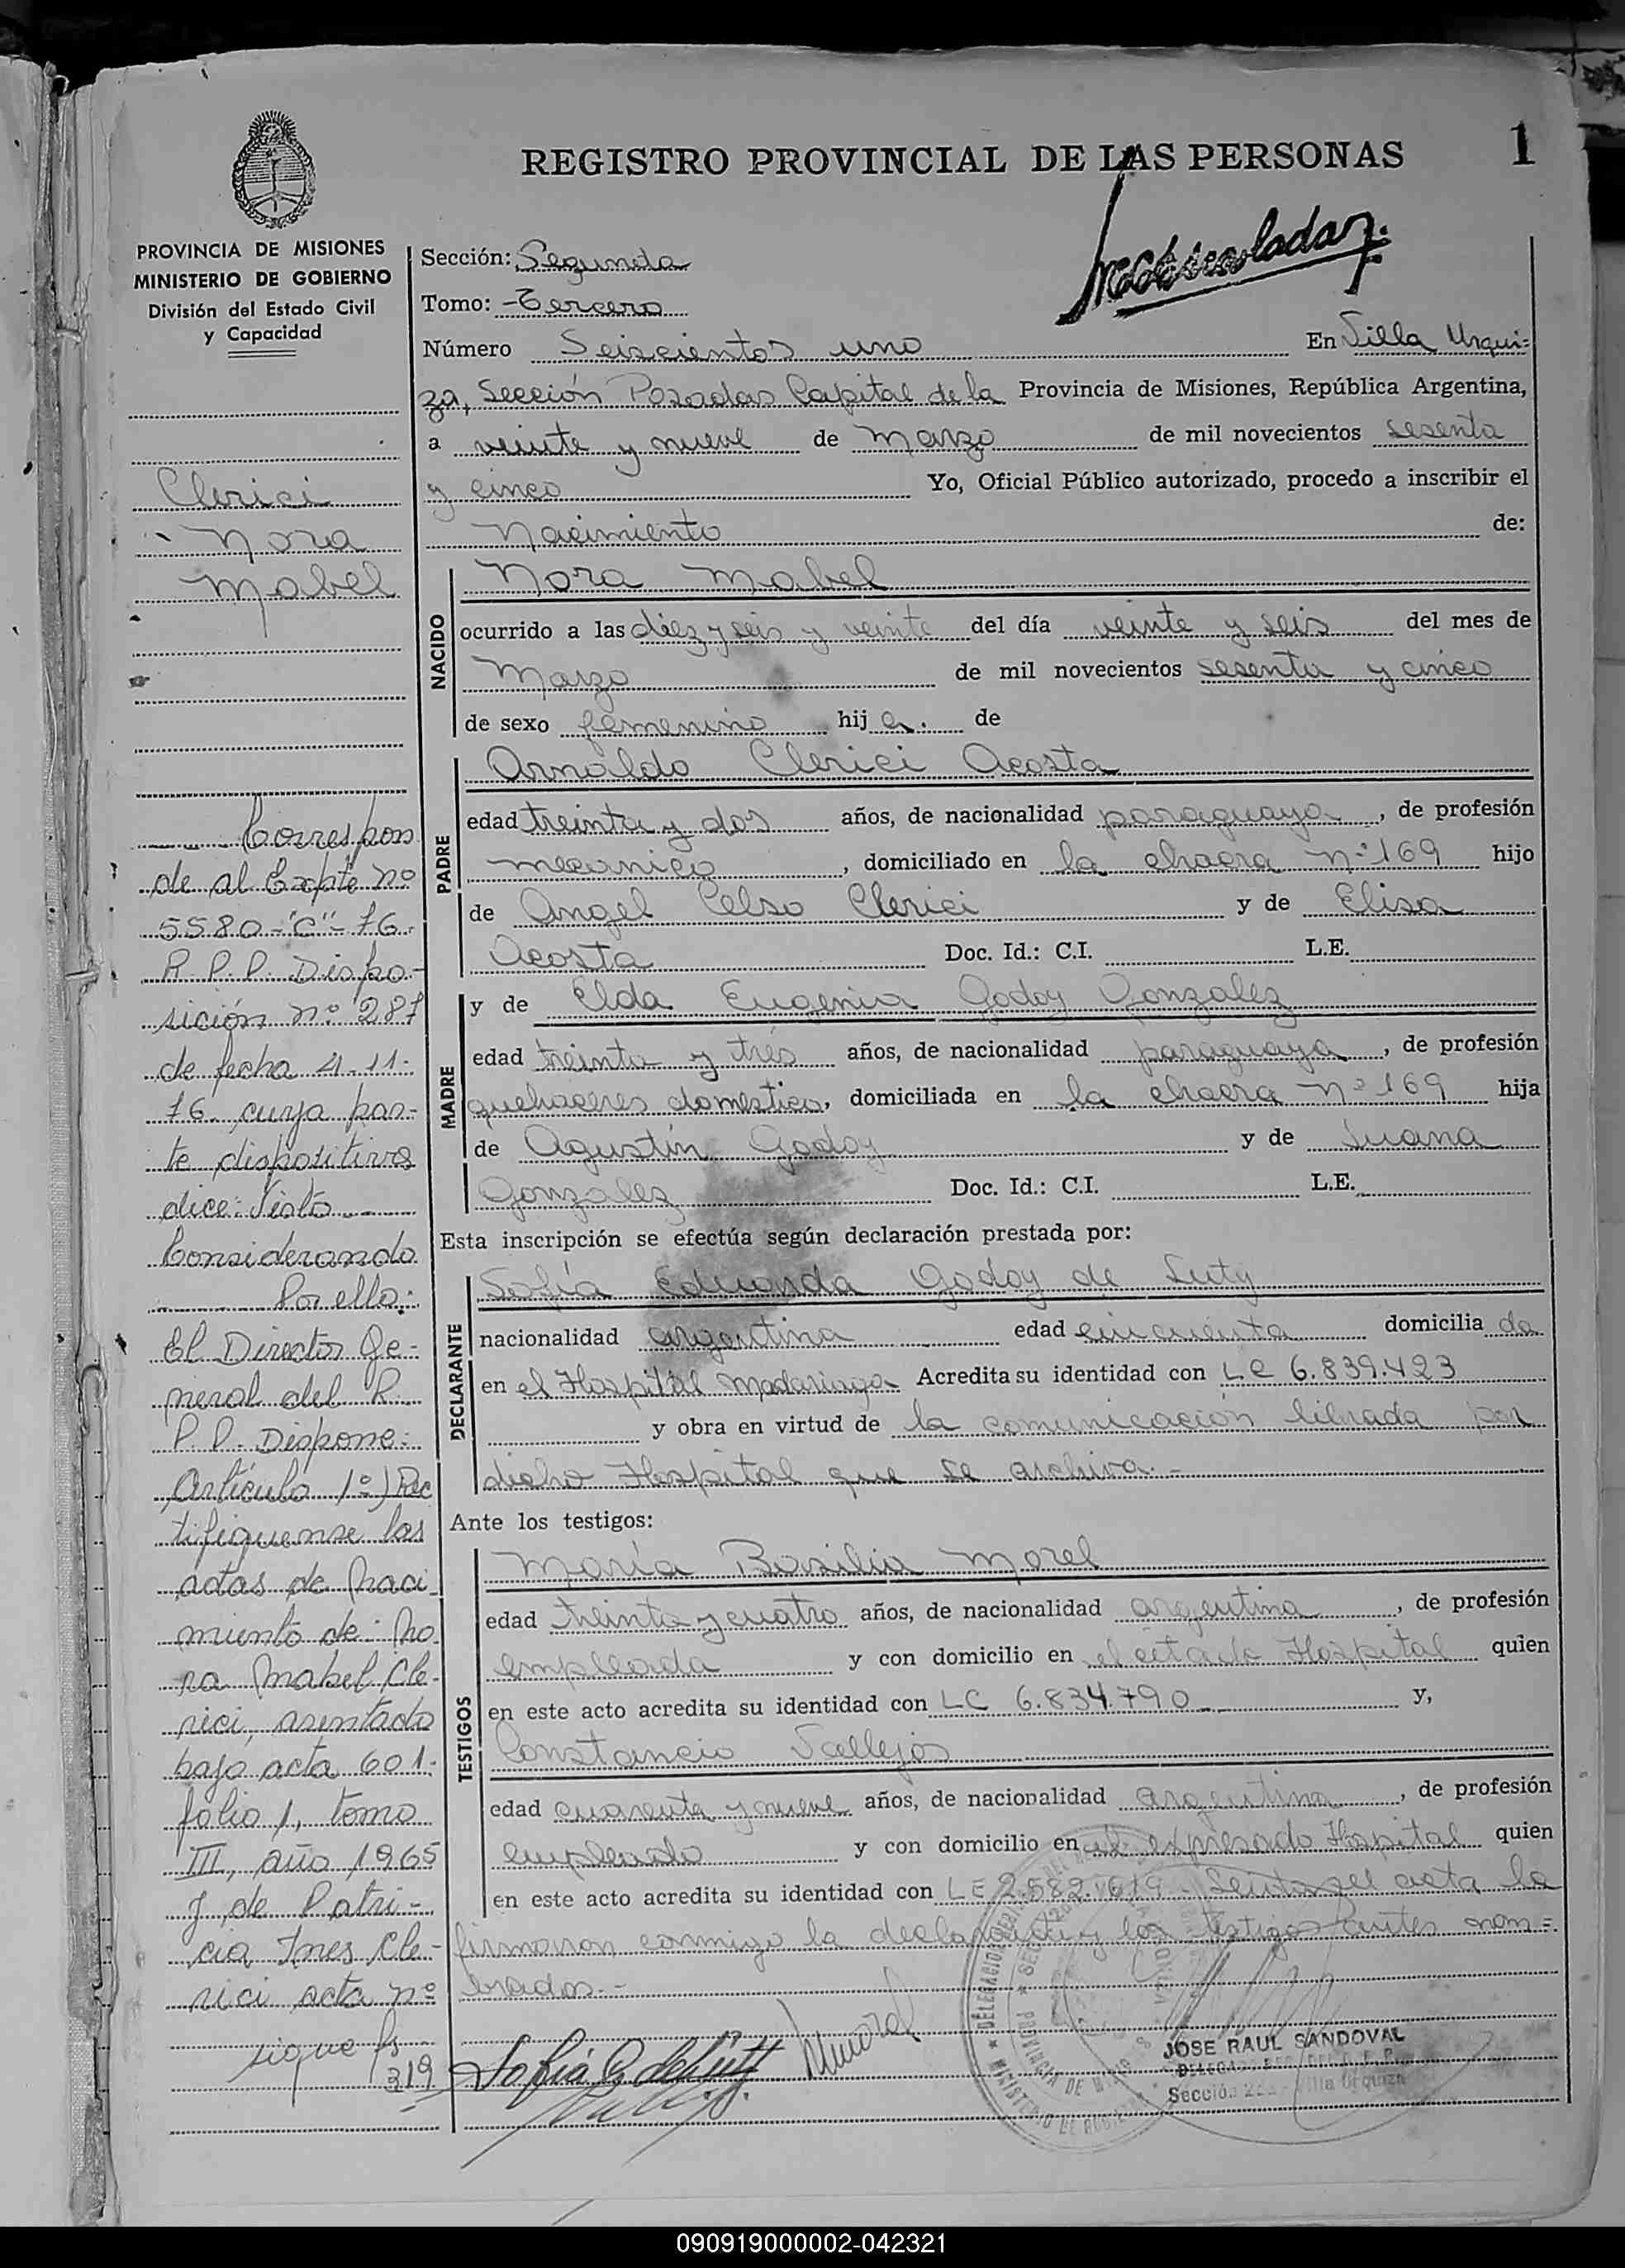 REGISTRO PROVINCIAL DE LAS PERSONAS
1
PROVINCIA DE MISIONES
MINISTERIO DE GOBIERNO
División del Estado Civil
y Capacidad
Clerici
Nora
Mabel
Correspon
de al Expte nº
5580-"C"-76.
R.P.P. Dispo-
sición nº 287
de fecha 4-11-
76. cuya par-
te dispositiva
dice: Visto
Considerando
Por ello:
El Director Ge-
neral del R.
P.P. Dispone:
Artículo 1º) Rec
tifiquense las
actas de Naci-
miento de: No
ra Mabel Cle-
rici, asentado
bajo acta 601-
folio 1, tomo
III, año 1965
y de Patri-
cia Ines Cle-
rici acta nº
sigue fs
319
Sección: Segunda
Tomo: Tercero
Número Seiscientos uno En Villa Urqui=
za, Sección Posadas Capital de la Provincia de Misiones, República Argentina,
a veinte y nueve de Marzo de mil novecientos sesenta
y cinco Yo, Oficial Público autorizado, procedo a inscribir el
Nacimiento de:
NACIDO
Nora Mabel
ocurrido a las diez y seis y veinte del día veinte y seis del mes de
Marzo de mil novecientos sesenta y cinco
de sexo femenino hij a. de
PADRE
Arnaldo Clerici Acosta
edad treinta y dos años, de nacionalidad paraguaya, de profesión
mecanico, domiciliado en la chacra nº 169 hijo
de Angel Celso Clerici y de Elisa
Acosta Doc. Id.: C.I. L.E.
MADRE
y de Elda Eugenia Godoy Gonzalez
edad treinta y tres años, de nacionalidad paraguaya, de profesión
quehaceres domestico, domiciliada en la chacra nº 169 hija
de Agustín Godoy y de Juana
Gonzalez Doc. Id.: C.I. L.E.
Esta inscripción se efectúa según declaración prestada por:
DECLARANTE
Sofía Eduarda Godoy de
nacionalidad argentina edad cincuenta domicilia da
en el Hospital Madariaga Acredita su identidad con LC 6.839.423
y obra en virtud de la comunicación librada por
dicho Hospital que se archiva.-
Ante los testigos:
TESTIGOS
María Basilia Morel
edad treinta y cuatro años, de nacionalidad argentina, de profesión
empleada y con domicilio en el citado Hospital quien
en este acto acredita su identidad con LC 6.834.790 y,
Constancio Vallejos
edad cuarenta y nueve años, de nacionalidad argentina, de profesión
empleado y con domicilio en el expresado Hospital quien
en este acto acredita su identidad con LE 2.582.619 el acta la
firmaron conmigo la declarante y los testigos antes nom=
brados.-
JOSE RAUL SANDOVAL
Sección 2da - Villa Urquiza
090919000002-042321